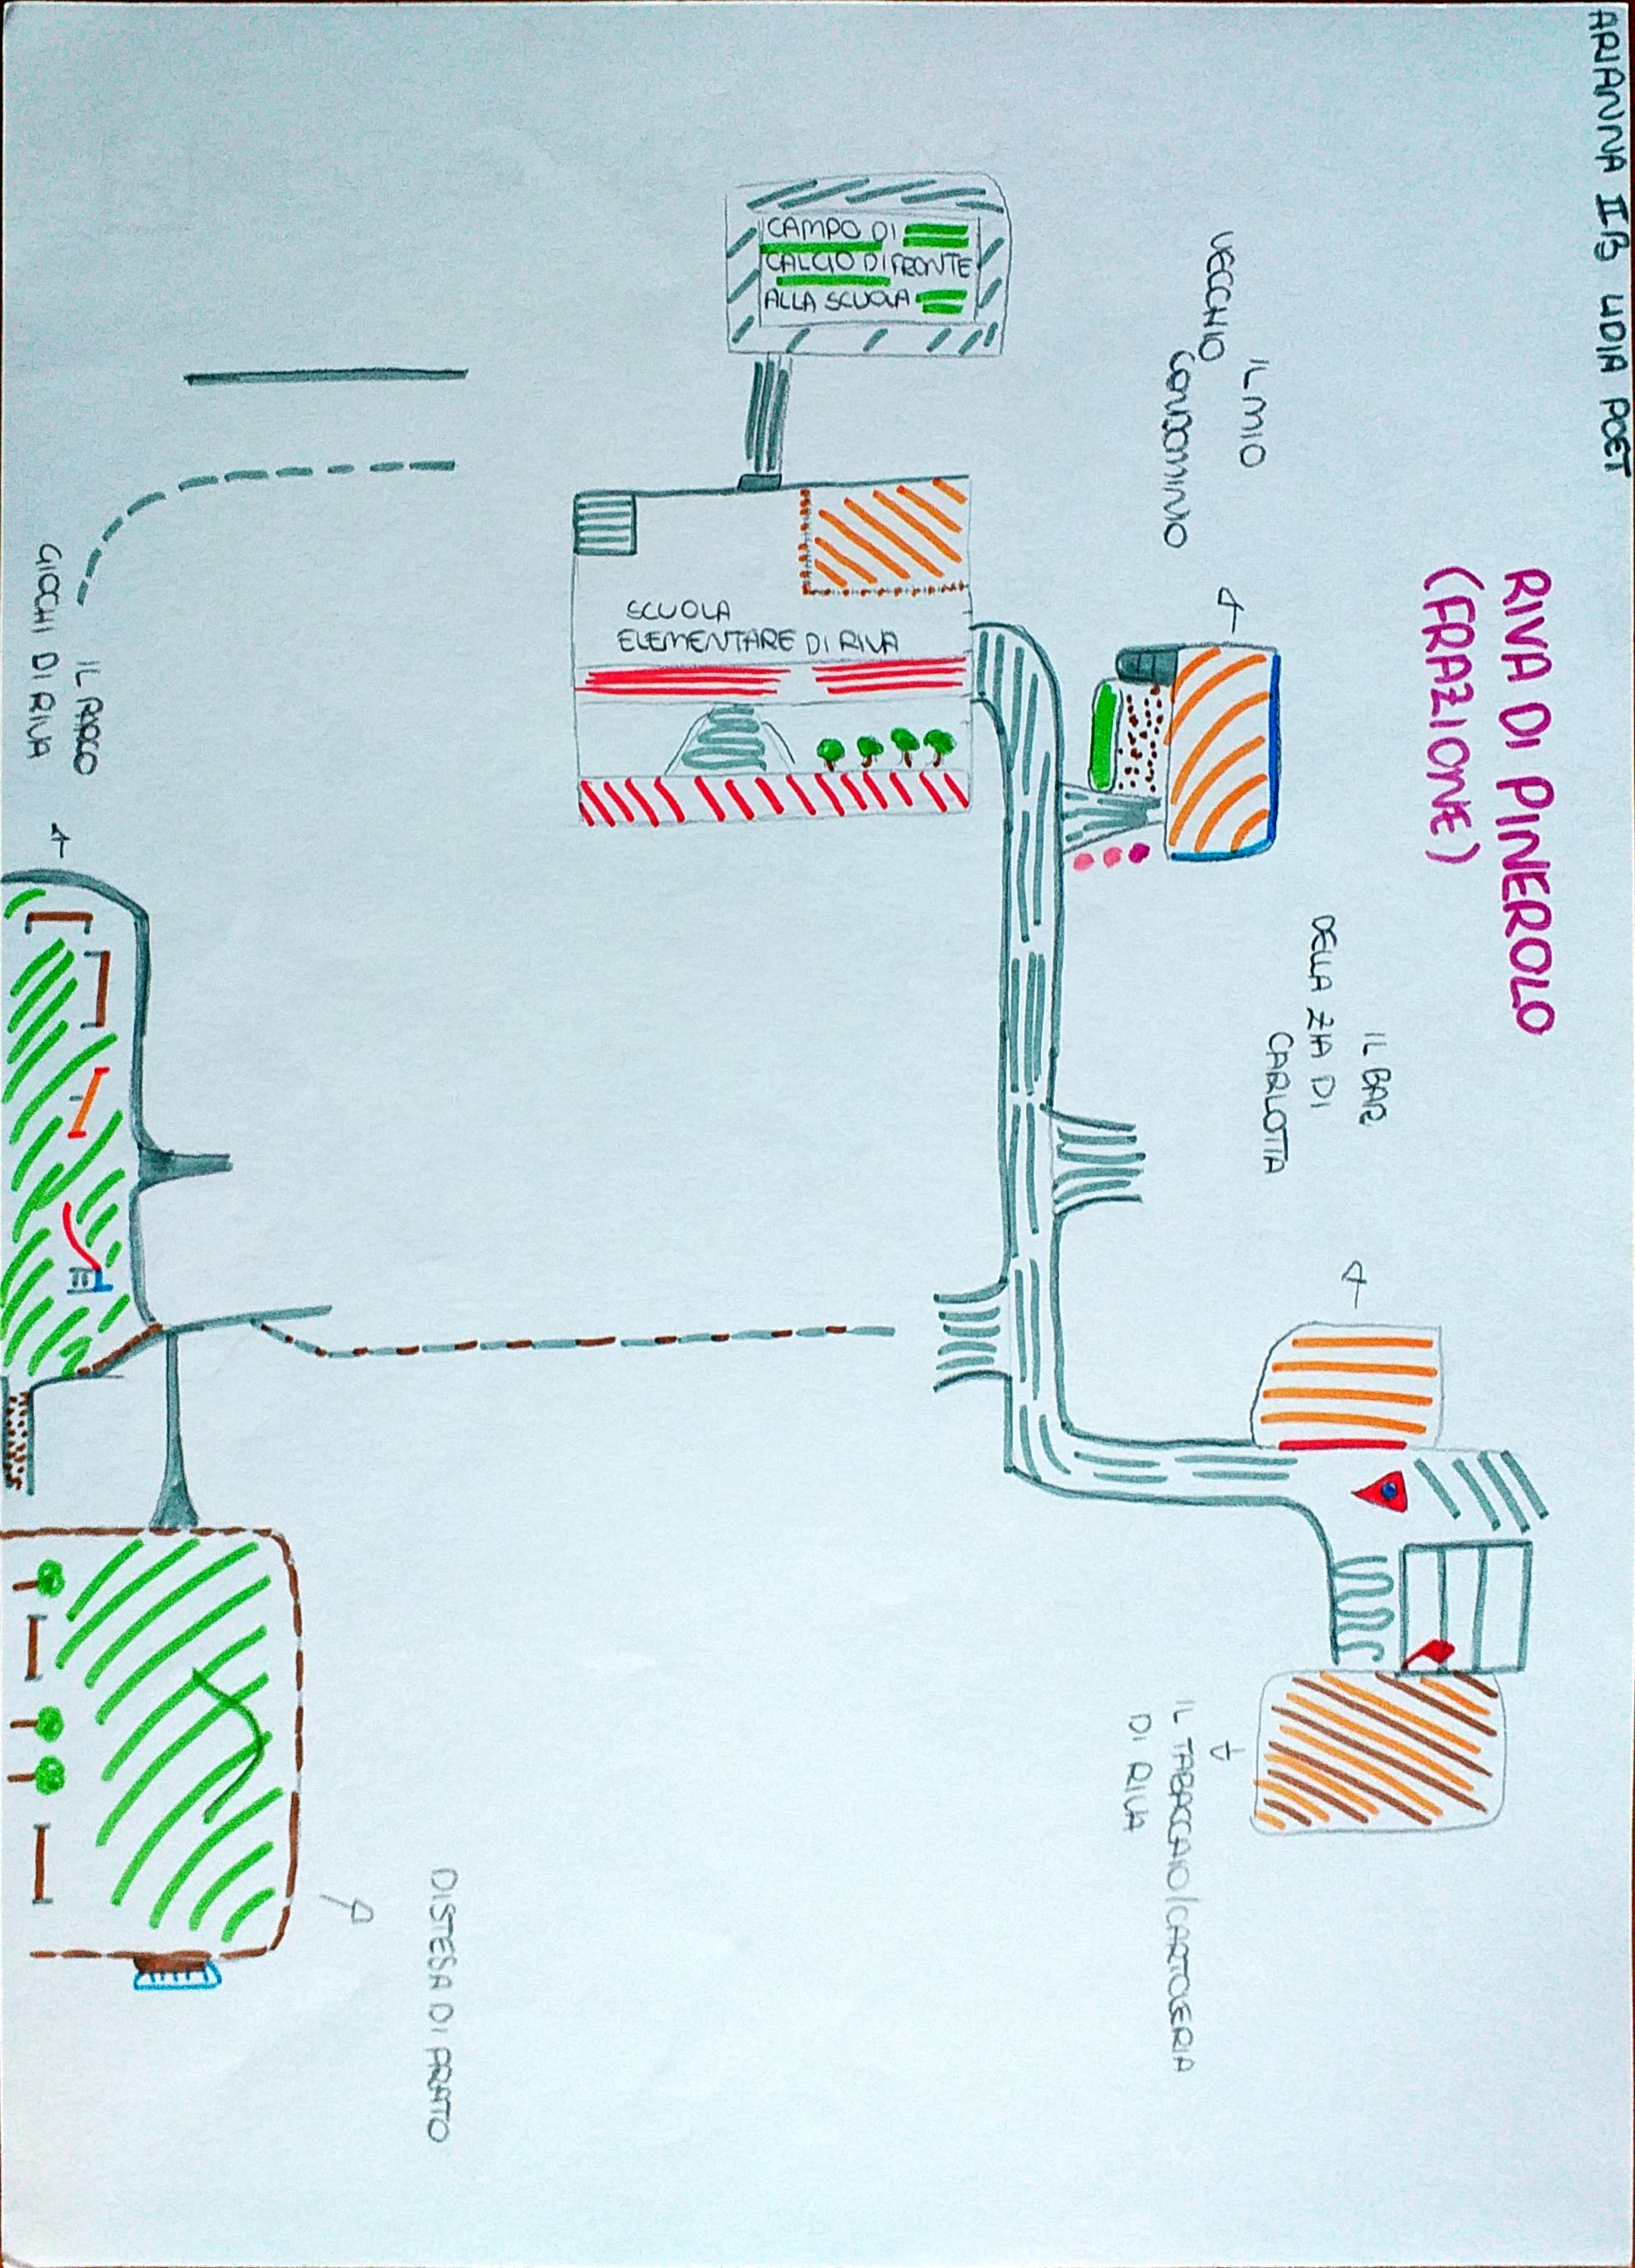 ARIANNA IIB LIDIA POET
RIVA DI PINEROLO
(FRAZIONE)
IL MIO
VECCHIO
CONDOMINIO
IL BAR
DELLA ZIA DI
CARLOTTA
IL TABACCAIO/CARTOLERIA
DI RIVA
CAMPO DI
CALCIO DI FRONTE
ALLA SCUOLA
SCUOLA
ELEMENTARE DI RIVA
DISTESA DI PRATO
IL PARCO
GIOCHI DI RIVA